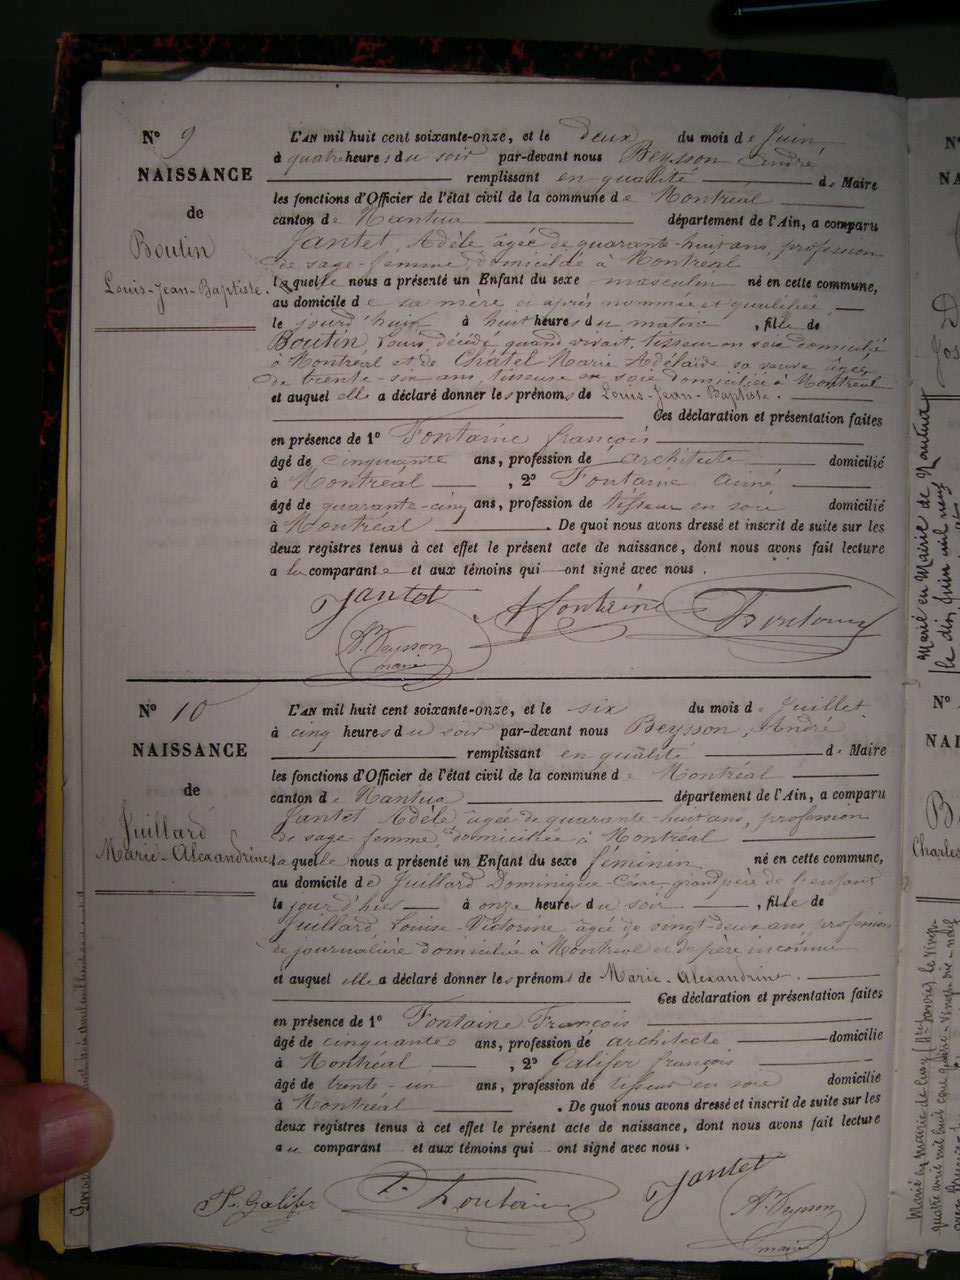 N° 9
NAISSANCE
de
Boutin
Louis-Jean-Baptiste.
L'AN mil huit cent soixante-onze, et le deux du mois de Juin
à quatre heures du soir par-devant nous Beysson André
remplissant en qualité de Maire
les fonctions d'Officier de l'état civil de la commune de Montréal
canton de Nantua département de l'Ain, a comparu
Jantet, Adèle âgée de quarante-huit ans, profession
de sage-femme domiciliée à Montréal
laquelle nous a présenté un Enfant du sexe masculin né en cette commune,
au domicile de sa mère ci après nommée et qualifiée
le jourd'hui à huit heures du matin, fils de
Boutin Louis, décédé quand vivait, tisseur en soie domicilié
à Montréal et de Châtel Marie Adélaïde sa veuve âgée
de trente-six ans, tisseuse en soie domiciliée à Montréal
et auquel elle a déclaré donner les prénoms de Louis-Jean-Baptiste.
Ces déclaration et présentation faites
en présence de 1° Fontaine françois
âgé de cinquante ans, profession de architecte domicilié
à Montréal, 2° Fontaine Aimé
âgé de quarante-cinq ans, profession de tisseur en soie domicilié
à Montréal. De quoi nous avons dressé et inscrit de suite sur les
deux registres tenus à cet effet le présent acte de naissance, dont nous avons fait lecture
a la comparante et aux témoins qui ont signé avec nous.
Jantet A fontaine Fontaine
A. Beysson
maire
N° 10
NAISSANCE
de
Juillard
Marie-Alexandrine
L'AN mil huit cent soixante-onze, et le six du mois de Juillet
à cinq heures du soir par-devant nous Beysson, André
remplissant en qualité de Maire
les fonctions d'Officier de l'état civil de la commune de Montréal
canton de Nantua département de l'Ain, a comparu
Jantet Adèle âgée de quarante-huit ans, profession
de sage-femme, domiciliée à Montréal
laquelle nous a présenté un Enfant du sexe féminin né en cette commune,
au domicile de Juillard Dominique-César grand père de l'enfant
le jour d'hier à onze heures du soir, fille de
Juillard, Louise-Victorine âgée de vingt-deux ans, profession
de journalière domiciliée à Montréal et de père inconnu
et auquel elle a déclaré donner les prénoms de Marie-Alexandrine.
Ces déclaration et présentation faites
en présence de 1° Fontaine François
âgé de cinquante ans, profession de architecte domicilié
à Montréal, 2° Galifer françois
âgé de trente-un ans, profession de tisseur en soie domicilié
à Montréal. De quoi nous avons dressé et inscrit de suite sur les
deux registres tenus à cet effet le présent acte de naissance, dont nous avons fait lecture
au comparant et aux témoins qui ont signé avec nous.
Galifer Fontaine Jantet
A. Beysson
maire
Marié en Mairie de Nantua
le dix Juin mil neuf
N°
NAI
Charles